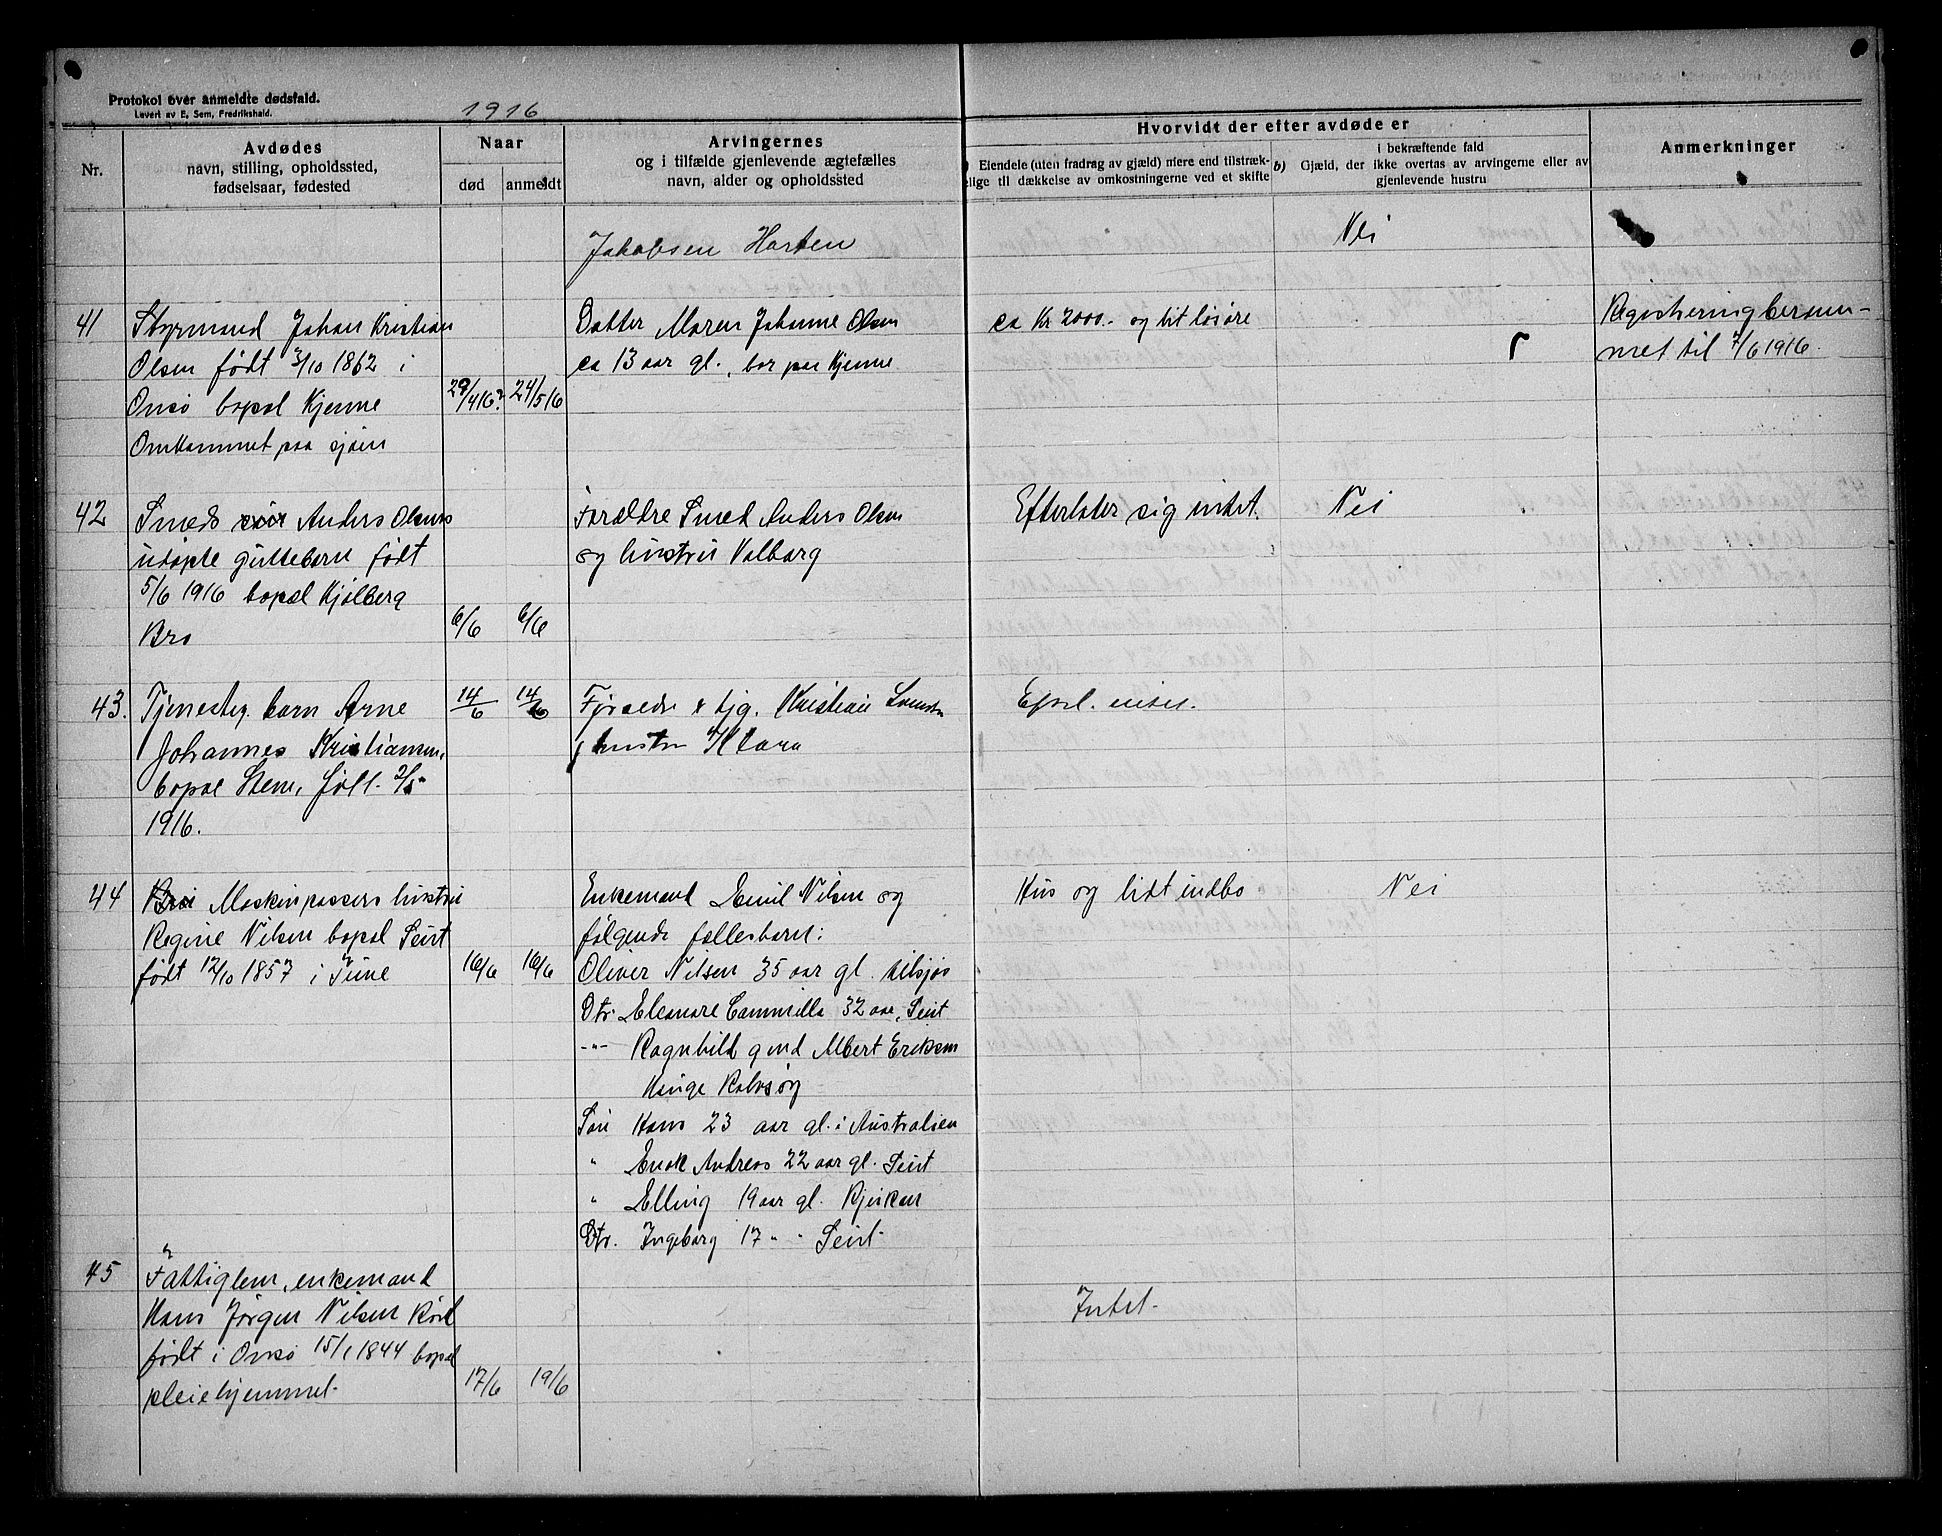 Protokol over anmeldte dødsfald.
Levert av E. Sem, Fredrikshald.
1916
Nr.
Avdødes
navn, stilling, opholdssted,
fødselsaar, fødested
Naar
død anmeldt
Arvingernes
og i tilfælde gjenlevende ægtefælles
navn, alder og opholdssted
Hvorvidt der efter avdøde er
Eiendele (uten fradrag av gjæld) mere end tilstræk-
lige til dækkelse av omkostningerne ved et skifte
b) Gjæld, der i bekræftende fald
ikke overtas av arvingerne eller av
gjenlevende hustru
Anmerkninger
Jakobsen Horten
Nei
41
Styrmand Johan Kristian
Olsen født 3/10 1862 i
Onsø bopæl Kjenne
Omkommet paa sjøen
29/4 16? 24/5 16
Datter Maren Johanne Olsen
ca 13 aar gl., bor paa Kjenne
ca Kr 2000.- og litt løsøre
Registrering beram-
met til 7/6 1916.
42
Smed Anders Olsens
udøpte guttebarn født
5/6 1916 bopæl Kjølberg
Bro
6/6 6/6
Forældre Smed Anders Olsen
og hustru Valborg
Efterlater sig intet.
Nei
43.
Tjenestg. barn Arne
Johannes Kristiansen,
bopæl Sten, født 2/5
1916.
14/6 14/6
tjg. Kristian
hustru Klara
44
Maskinpassers hustru
Regine Nilsen bopæl Seut
født 12/10 1857 i Tune
16/6 16/6
Enkemand Emil Nilsen og
følgende fællesbarn:
Oliver Nilsen 35 aar gl. tilsjøs
Dtr. Eleonore Cammilla 32 aar, Seut
-"- Ragnhild g med Albert Eriksen
Hauge Rolvsøy
Søn Hans 23 aar gl. i Australien
" Enok Andreas 22 aar gl. Seut
" Elling 19 aar gl.
Dtr. Ingeborg 17 " " Seut
Hus og lidt indbo
Nei
45
Fattiglem, enkemand
Hans Jørgen Nilsen Rød
født i Onsø 15/1 1844 bopæl
pleiehjemmet.
17/6 19/6
Intet.